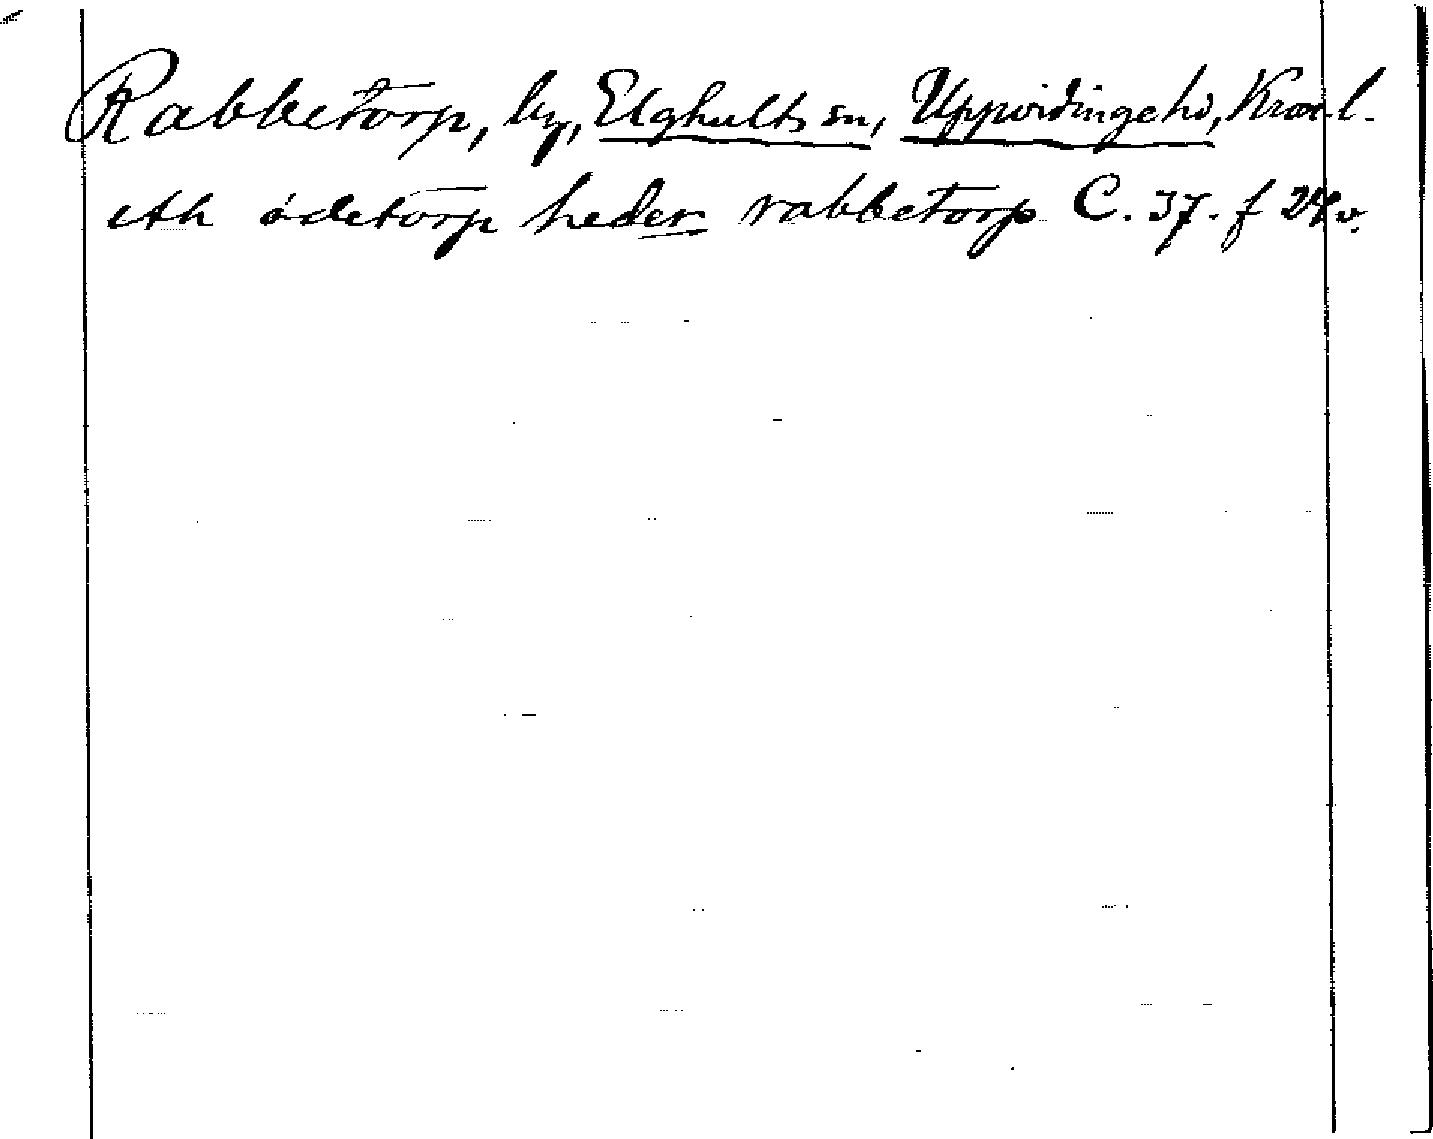 Rabbetorp, by, Elghults sn, Uppvidinge hd, Kron. l.
eth ödetorp heder rabbetorp C. 37. f 24 v.